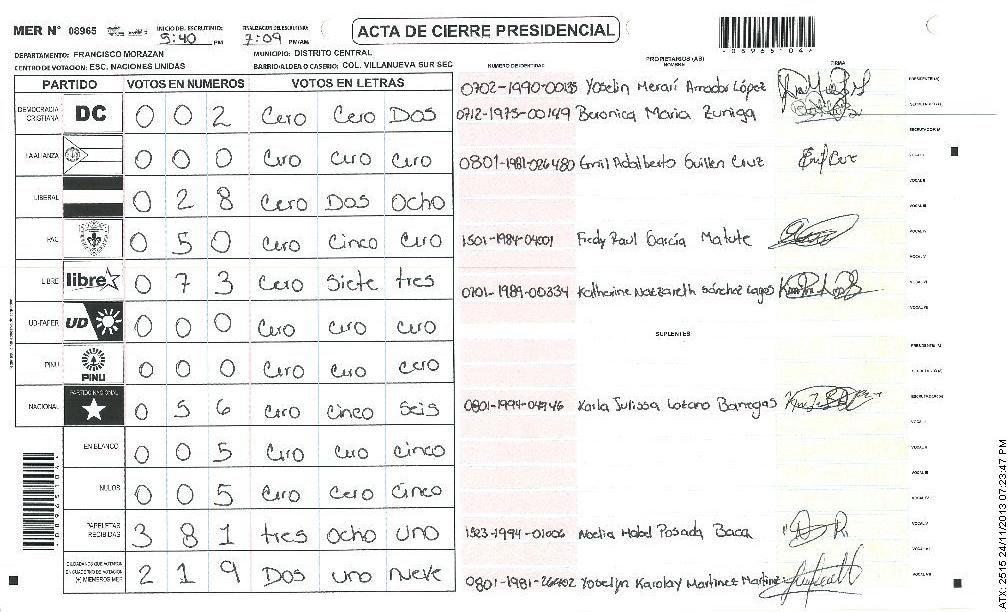 MER N° 08965 INICIO DEL ESCRUTINIO: 5:40 PM FINALIZACION DEL ESCRUTINIO: 7:09 PM/AM ACTA DE CIERRE PRESIDENCIAL
DEPARTAMENTO: FRANCISCO MORAZAN MUNICIPIO: DISTRITO CENTRAL
CENTRO DE VOTACION: ESC. NACIONES UNIDAS BARRIO/ALDEA O CASERIO: COL. VILLANUEVA SUR SEC
NUMERO DE IDENTIDAD PROPIETARIOS (AS) NOMBRE FIRMA
PARTIDO VOTOS EN NUMEROS VOTOS EN LETRAS
DEMOCRACIA CRISTIANA DC 0 0 2 Cero Cero Dos
LA ALIANZA 0 0 0 Cero Cero Cero
LIBERAL 0 2 8 Cero Dos Ocho
PAC 0 5 0 Cero Cinco Cero
LIBRE libre 0 7 3 Cero Siete tres
UD-FAPER UD 0 0 0 Cero Cero Cero
PINU PINU 0 0 0 Cero Cero Cero
NACIONAL PARTIDO NACIONAL 0 5 6 Cero Cinco Seis
EN BLANCO 0 0 5 Cero Cero Cinco
NULOS 0 0 5 Cero Cero Cinco
PAPELETAS RECIBIDAS 3 8 1 tres Ocho Uno
CIUDADANOS QUE VOTARON EN CUADERNO DE VOTACION (+) MIEMBROS MER 2 1 9 Dos Uno Nueve
0702-1990-00135 Yoselin Merari Amador López PRESIDENTE (A)
0712-1975-00149 Beronica Maria Zuniga SECRETARIO (A)
ESCRUTADOR (A)
0801-1981-026480 Emil Adalberto Guillen Cruz VOCAL II
VOCAL III
1501-1984-04001 Fredy Raul García Matute VOCAL IV
VOCAL V
0701-1989-00334 Katherine Nazzareth Sánchez Lagos VOCAL VI
VOCAL VII
SUPLENTES
PRESIDENTE (A)
SECRETARIO (A)
0801-1994-04946 Karla Julissa Lozano Banegas ESCRUTADOR (A)
VOCAL I
VOCAL II
VOCAL III
VOCAL IV
1523-1994-01006 Noelia Mabel Posada Baca VOCAL V
VOCAL VI
Yocelyn Karolay Martinez Martinez VOCAL VII
ATX: 2515 24/11/2013 07:23:47 PM